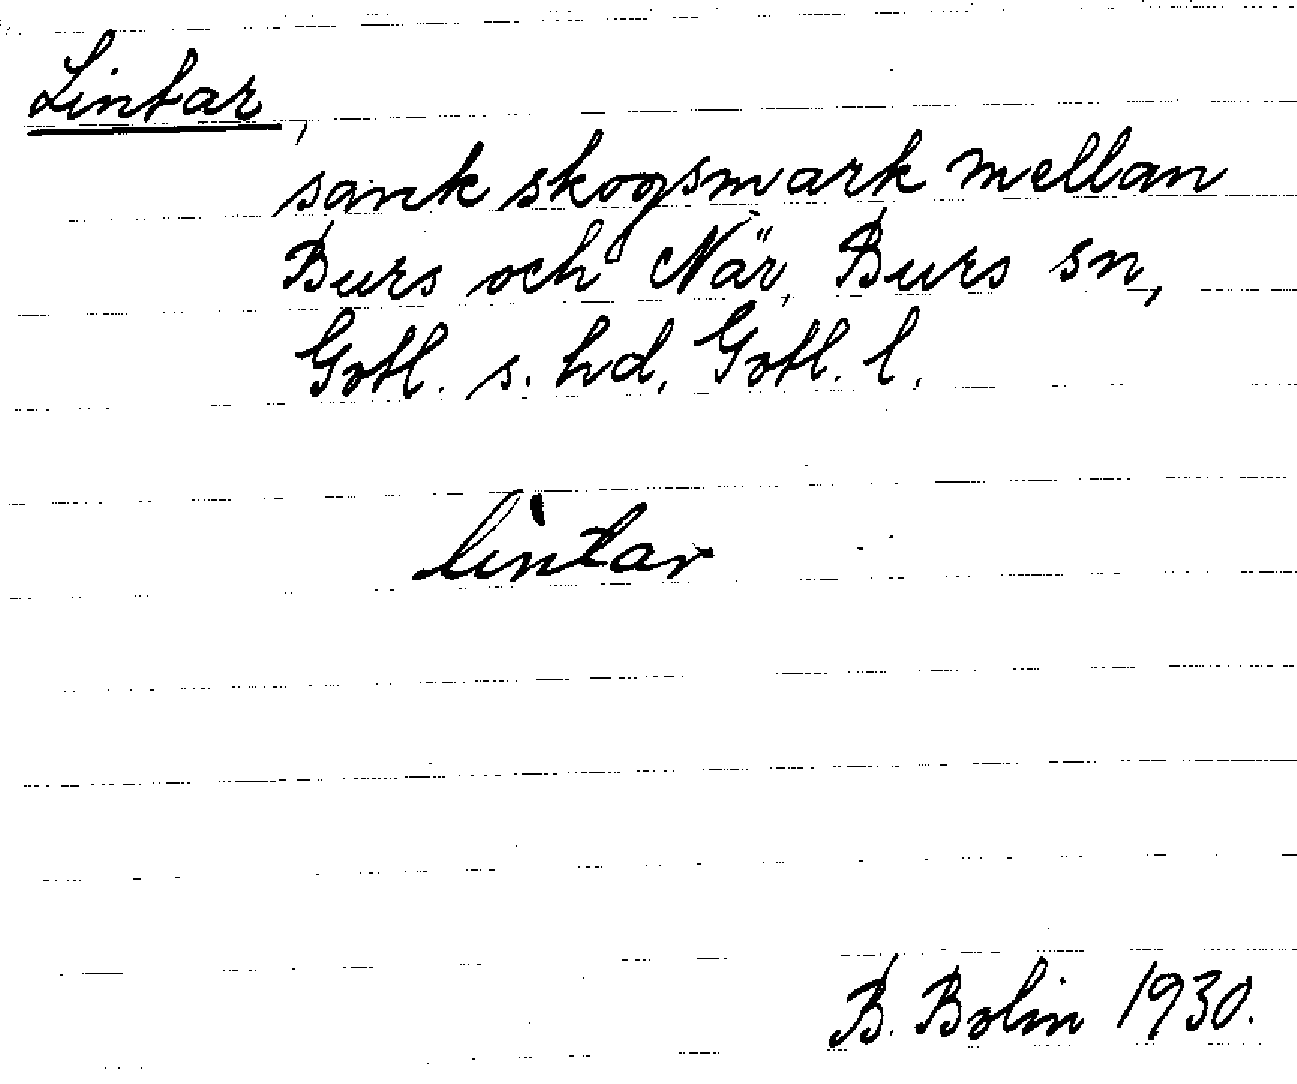 Lintar,
sank skogsmark mellan
Burs och När, Burs sn,
Gotl. s. hd, Gotl. l.
lìntar
B. Bolin 1930.